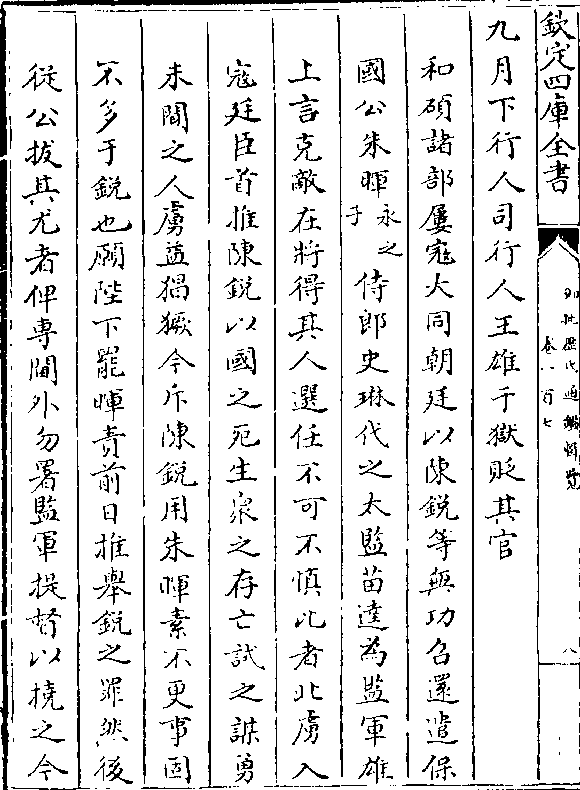 欽定四庫全書
御批歷代通鑑輯覽
卷一百七
八
九月下行人司行人王雄于獄貶其官
和碩諸部屢宼大同朝廷以陳銳等無功召還遣保
國公朱暉永之子侍郎史琳代之太監苗逵為監軍雄
上言克敵在將得其人選任不可不慎比者北虜入
寇廷臣首推陳銳以國之死生衆之存亡試之謀勇
未聞之人虜益猖獗今斥陳銳用朱暉素不更事固
不多于銳也願陛下罷暉責前日推舉銳之罪然後
從公拔其尤者俾專閫外勿署監軍提督以撓之今